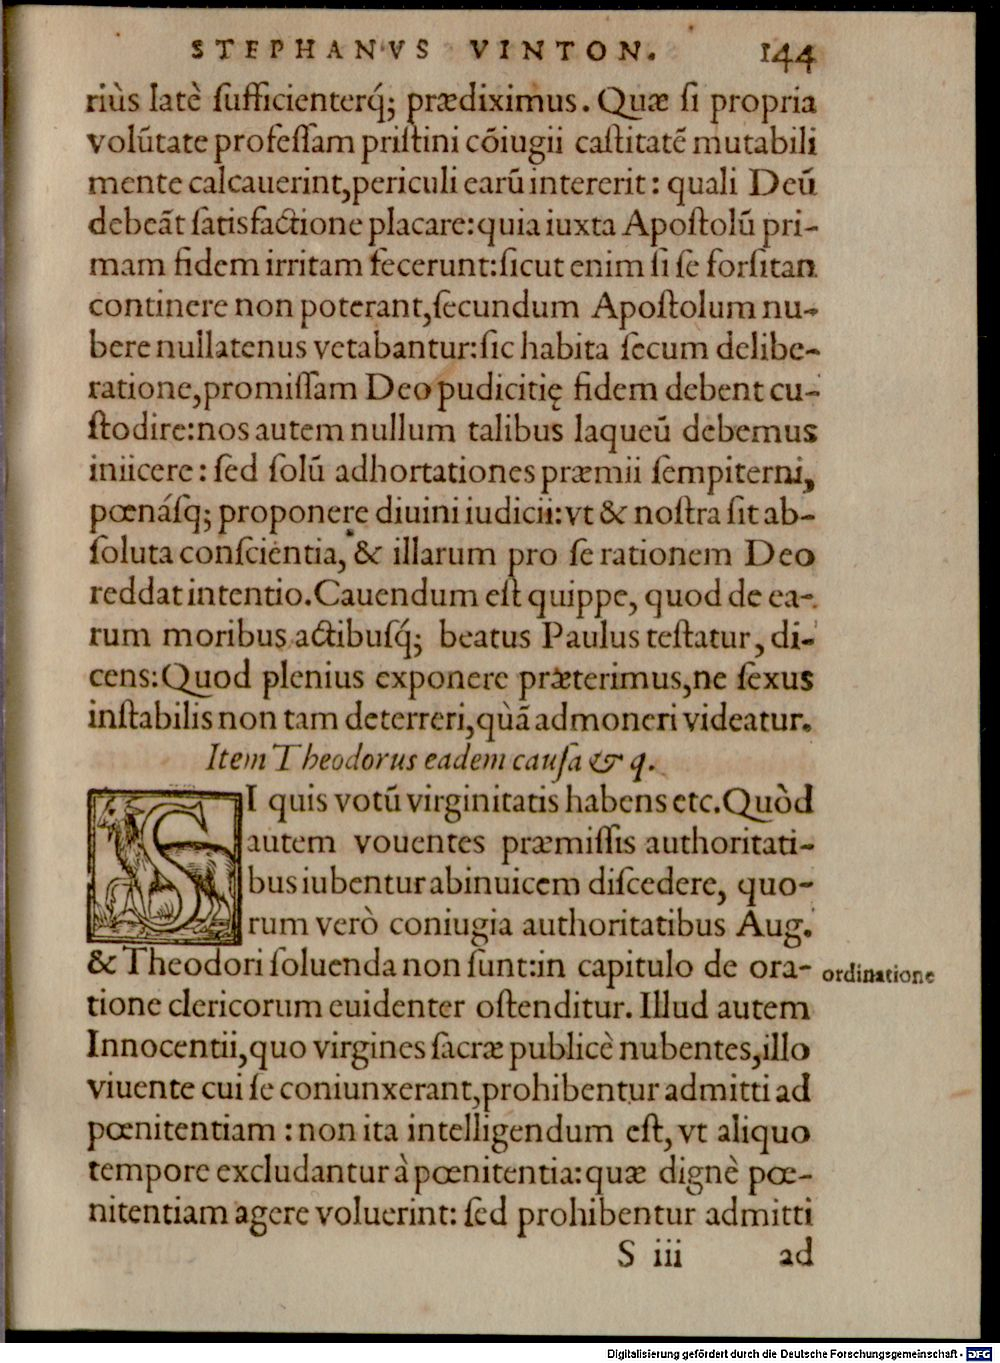 STEPHANVS VINTON. 144
riùs latè ſufficienterq́; prædiximus. Quæ ſi propria
volũtate profeſſam priſtini cõiugii caſtitatẽ mutabili
mente calcauerint, periculi earũ intererit: quali Deũ
debeãt ſatisfactione placare: quia iuxta Apoſtolũ pri-
mam fidem irritam fecerunt: ſicut enim ſi ſe forſitan
continere non poterant, ſecundum Apoſtolum nu-
bere nullatenus vetabantur: ſic habita ſecum delibe-
ratione, promiſſam Deo pudicitię fidem debent cu-
ſtodire: nos autem nullum talibus laqueũ debemus
iniicere: ſed ſolũ adhortationes præmii ſempiterni,
pœnáſq; proponere diuini iudicii: vt & noſtra ſit ab-
ſoluta conſcientia, & illarum pro ſe rationem Deo
reddat intentio. Cauendum eſt quippe, quod de ea-
rum moribus actibuſq́; beatus Paulus teſtatur, di-
cens: Quod plenius exponere præterimus, ne ſexus
inſtabilis non tam deterreri, quàã admoneri videatur.
Item Theodorus eadem cauſa & q.
SI quis votũ virginitatis habens etc. Quòd
autem vouentes præmiſſis authoritati-
bus iubentur abinuicem diſcedere, quo-
rum verò coniugia authoritatibus Aug.
& Theodori ſoluenda non ſunt: in capitulo de ora-
ordinatione
tione clericorum euidenter oſtenditur. Illud autem
Innocentii, quo virgines ſacræ publicè nubentes, illo
viuente cui ſe coniunxerant, prohibentur admitti ad
pœnitentiam: non ita intelligendum eſt, vt aliquo
tempore excludantur à pœnitentia: quæ dignè pœ-
nitentiam agere voluerint: ſed prohibentur admitti
S iii ad
Digitalisierung gefördert durch die Deutsche Forschungsgemeinschaft - DFG